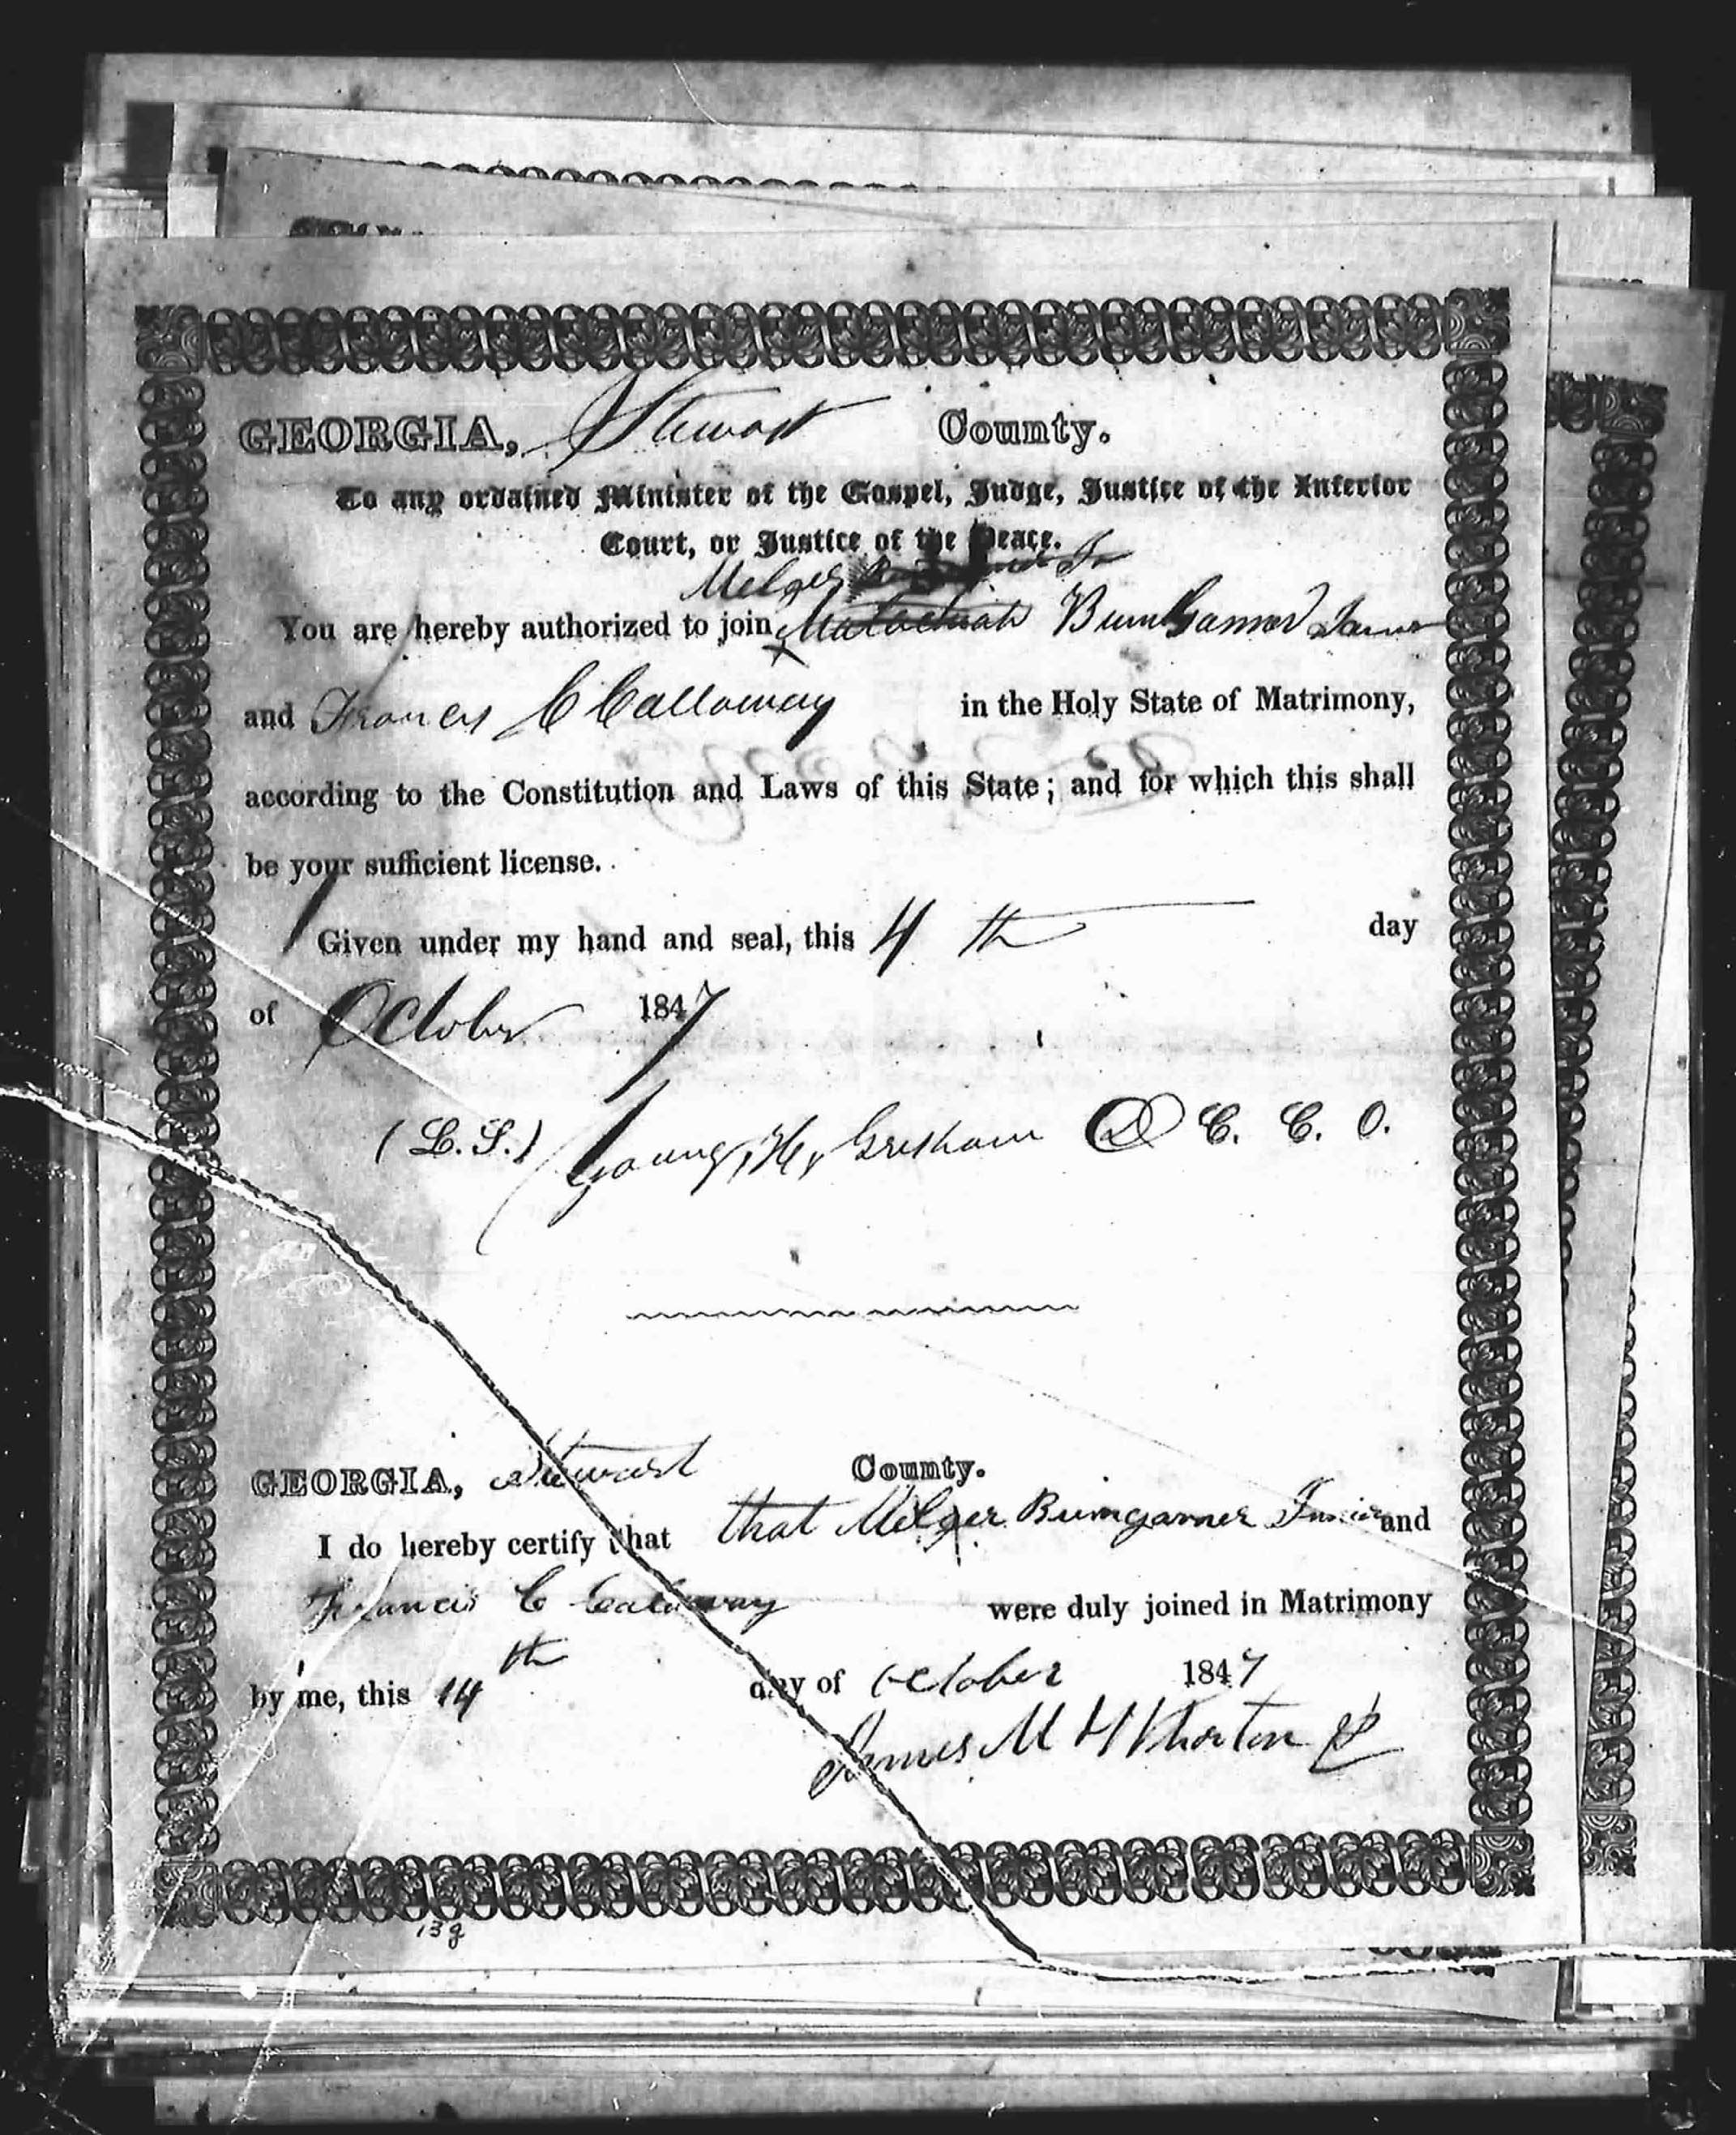 GEORGIA, Stewart County.
To any ordained Minister of the Gospel, Judge, Justice of the Inferior
Court, or Justice of the Peace.
Melger Jr
You are hereby authorized to join BumGarner Junior
and Francis C Calloway in the Holy State of Matrimony,
according to the Constitution and Laws of this State; and for which this shall
be your sufficient license.
Given under my hand and seal, this 4 th day
of October 1847
(L.S.) Young H. Gresham D C. C. O.
GEORGIA, Stewart County.
I do hereby certify that that Melger Bumgarner Junior and
Francis C Calaway were duly joined in Matrimony
by me, this 14th day of October 1847
James M H Thorton JP
139